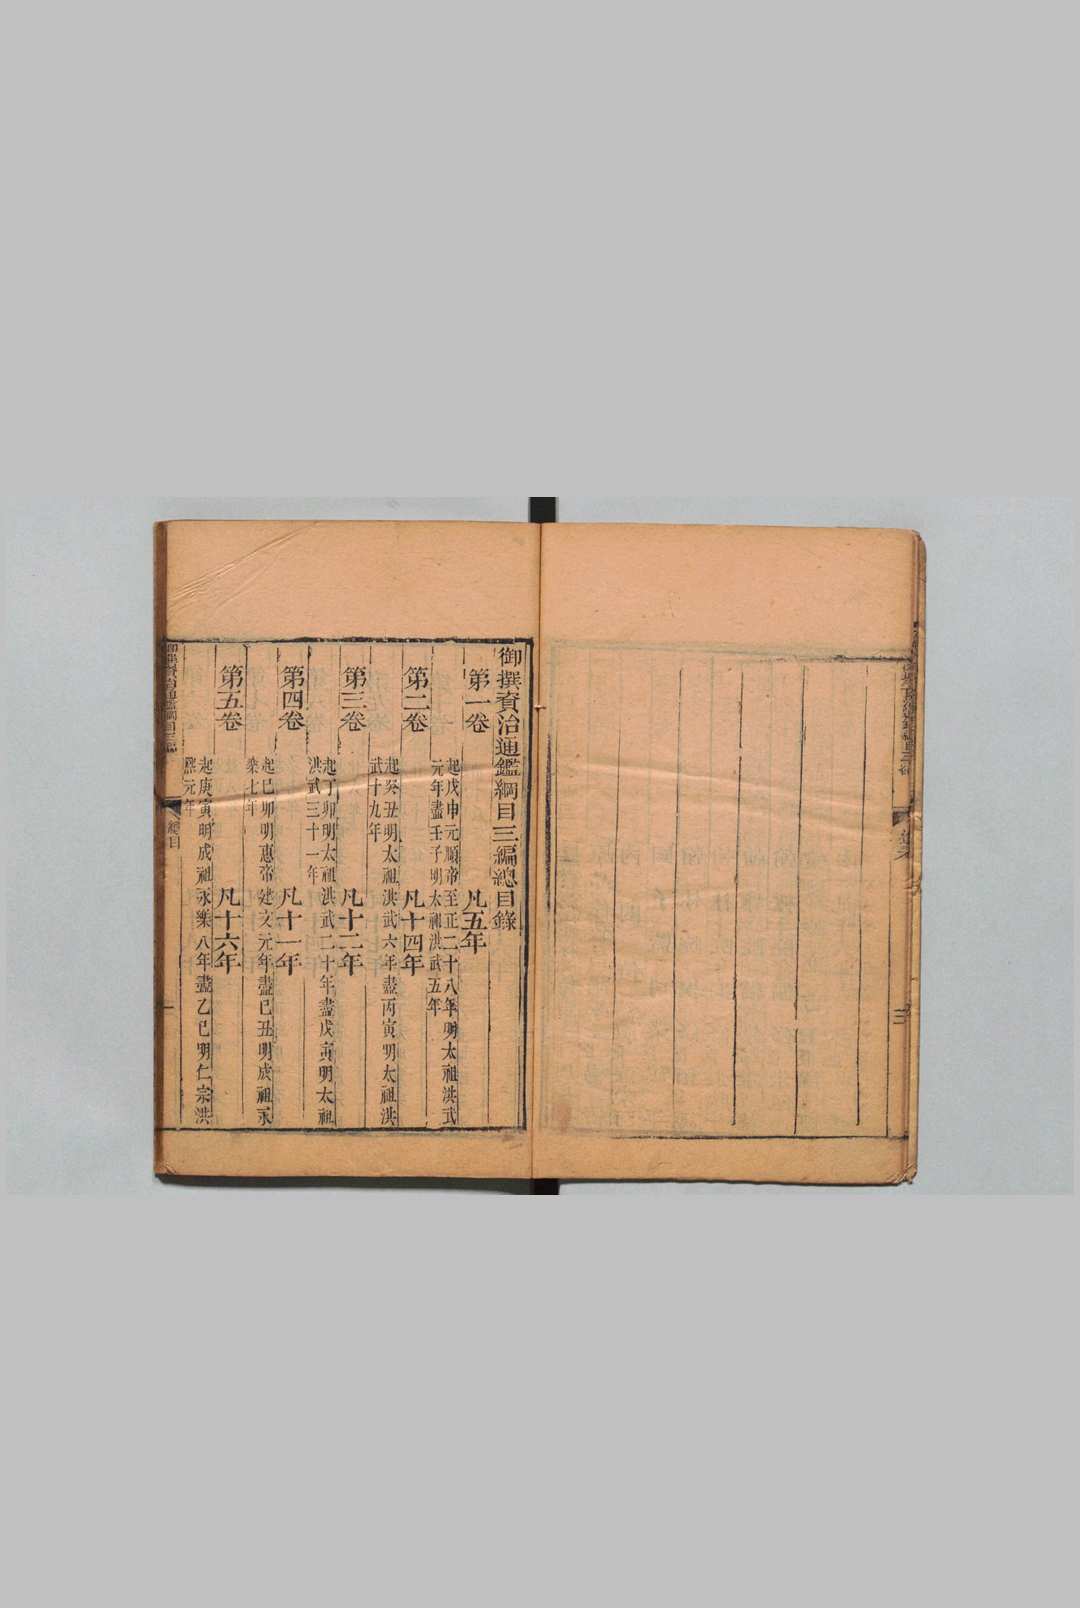 御撰資治通鑑綱目三編總目錄
第一卷 凡五年
起戊申元順帝至正二十八年明太祖洪武
元年盡壬子明太祖洪武五年
第二卷 凡十四年
起癸丑明太祖洪武六年盡丙寅明太祖洪
武十九年
第三卷 凡十二年
起丁卯明太祖洪武二十年盡戊寅明太祖
洪武三十一年
第四卷 凡十一年
起己卯明惠帝建文元年盡己丑明成祖永
樂七年
第五卷 凡十六年
起庚寅明成祖永樂八年盡乙巳明仁宗洪
熙元年
御撰資治通鑑綱目三編
總目
一